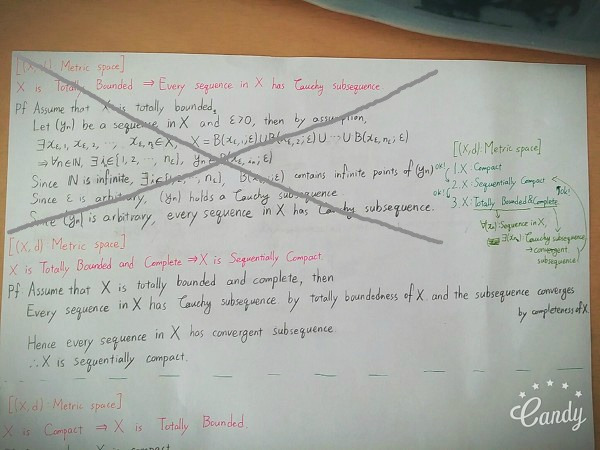 [(X, d) : Metric space]
X is Totally Bounded ⇒ Every sequence in X has Cauchy subsequence
Pf Assume that X is totally bounded,
Let (yn) be a sequence in X and ε>0, then by assumption,
∃xε,1, xε,2, ⋯, xε,nε∈X, X = B(xε,1;ε)∪B(xε,2;ε)∪⋯∪B(xε,nε;ε)
⇒ ∀n∈ℕ, ∃in∈{1, 2, ⋯, nε}, yn∈B(xε,in;ε)
Since ℕ is infinite, ∃i∈{1, 2, ⋯, nε}, B(xε,i;ε) contains infinite points of (yn)
Since ε is arbitrary, (yn) holds a Cauchy subsequence.
Since (yn) is arbitrary, every sequence in X has Cauchy subsequence.
[(X,d) : Metric space]
ok! 1. X : Compact
ok! 2. X : Sequentially Compact
ok!
3. X : Totally Bounded & Complete
∀(xn) : Sequence in X,
∃(xnk) : Cauchy subsequence
→ convergent
subsequence
[(X, d) : Metric space]
X is Totally Bounded and Complete ⇒ X is Sequentially Compact
Pf Assume that X is totally bounded and complete, then
Every sequence in X has Cauchy subsequence by totally boundedness of X. and the subsequence converges
by completeness of X.
Hence every sequence in X has convergent subsequence.
∴ X is sequentially compact.
[(X, d) : Metric space]
X is Compact ⇒ X is Totally Bounded.
Candy